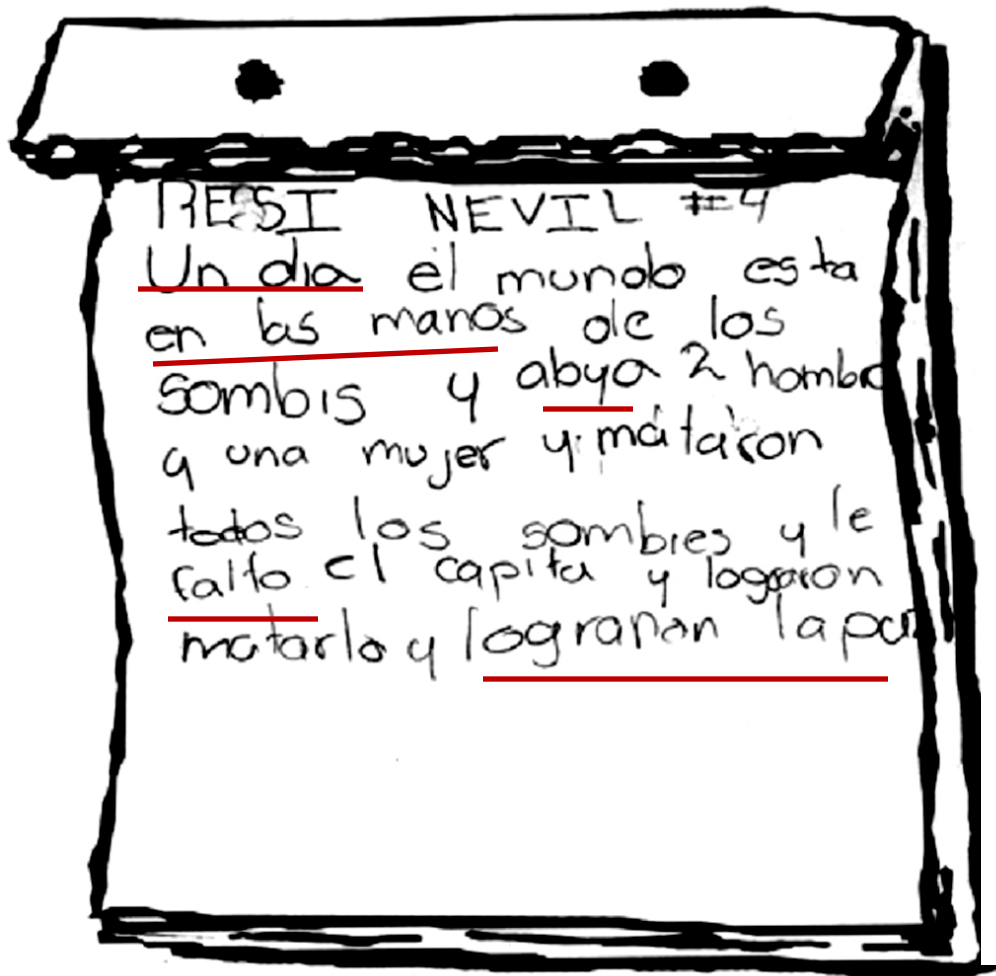 RESI NEVIL #4
Un dia el mundo esta
en las manos de los
sombis y abya 2 hombre
y una mujer y mataron
todos los sombies y le
falto el capita y lograron
matarlo y lograrón la paz